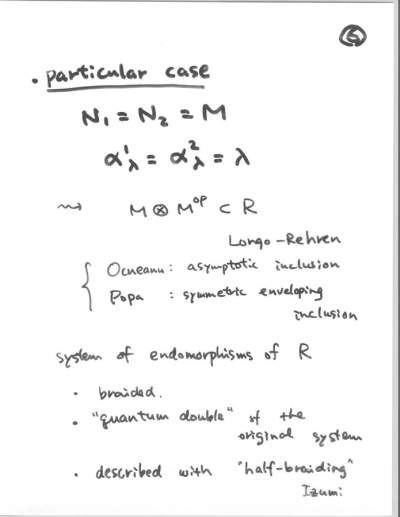 ⑤
• particular case
N₁ = N₂ = M
α¹_λ = α²_λ = λ
⇝ M ⊗ M^op ⊂ R
Longo-Rehren
{ Ocneanu : asymptotic inclusion
Popa : symmetric enveloping
inclusion
system of endomorphisms of R
• braided.
• "quantum double" of the
original system
• described with "half-braiding"
Izumi